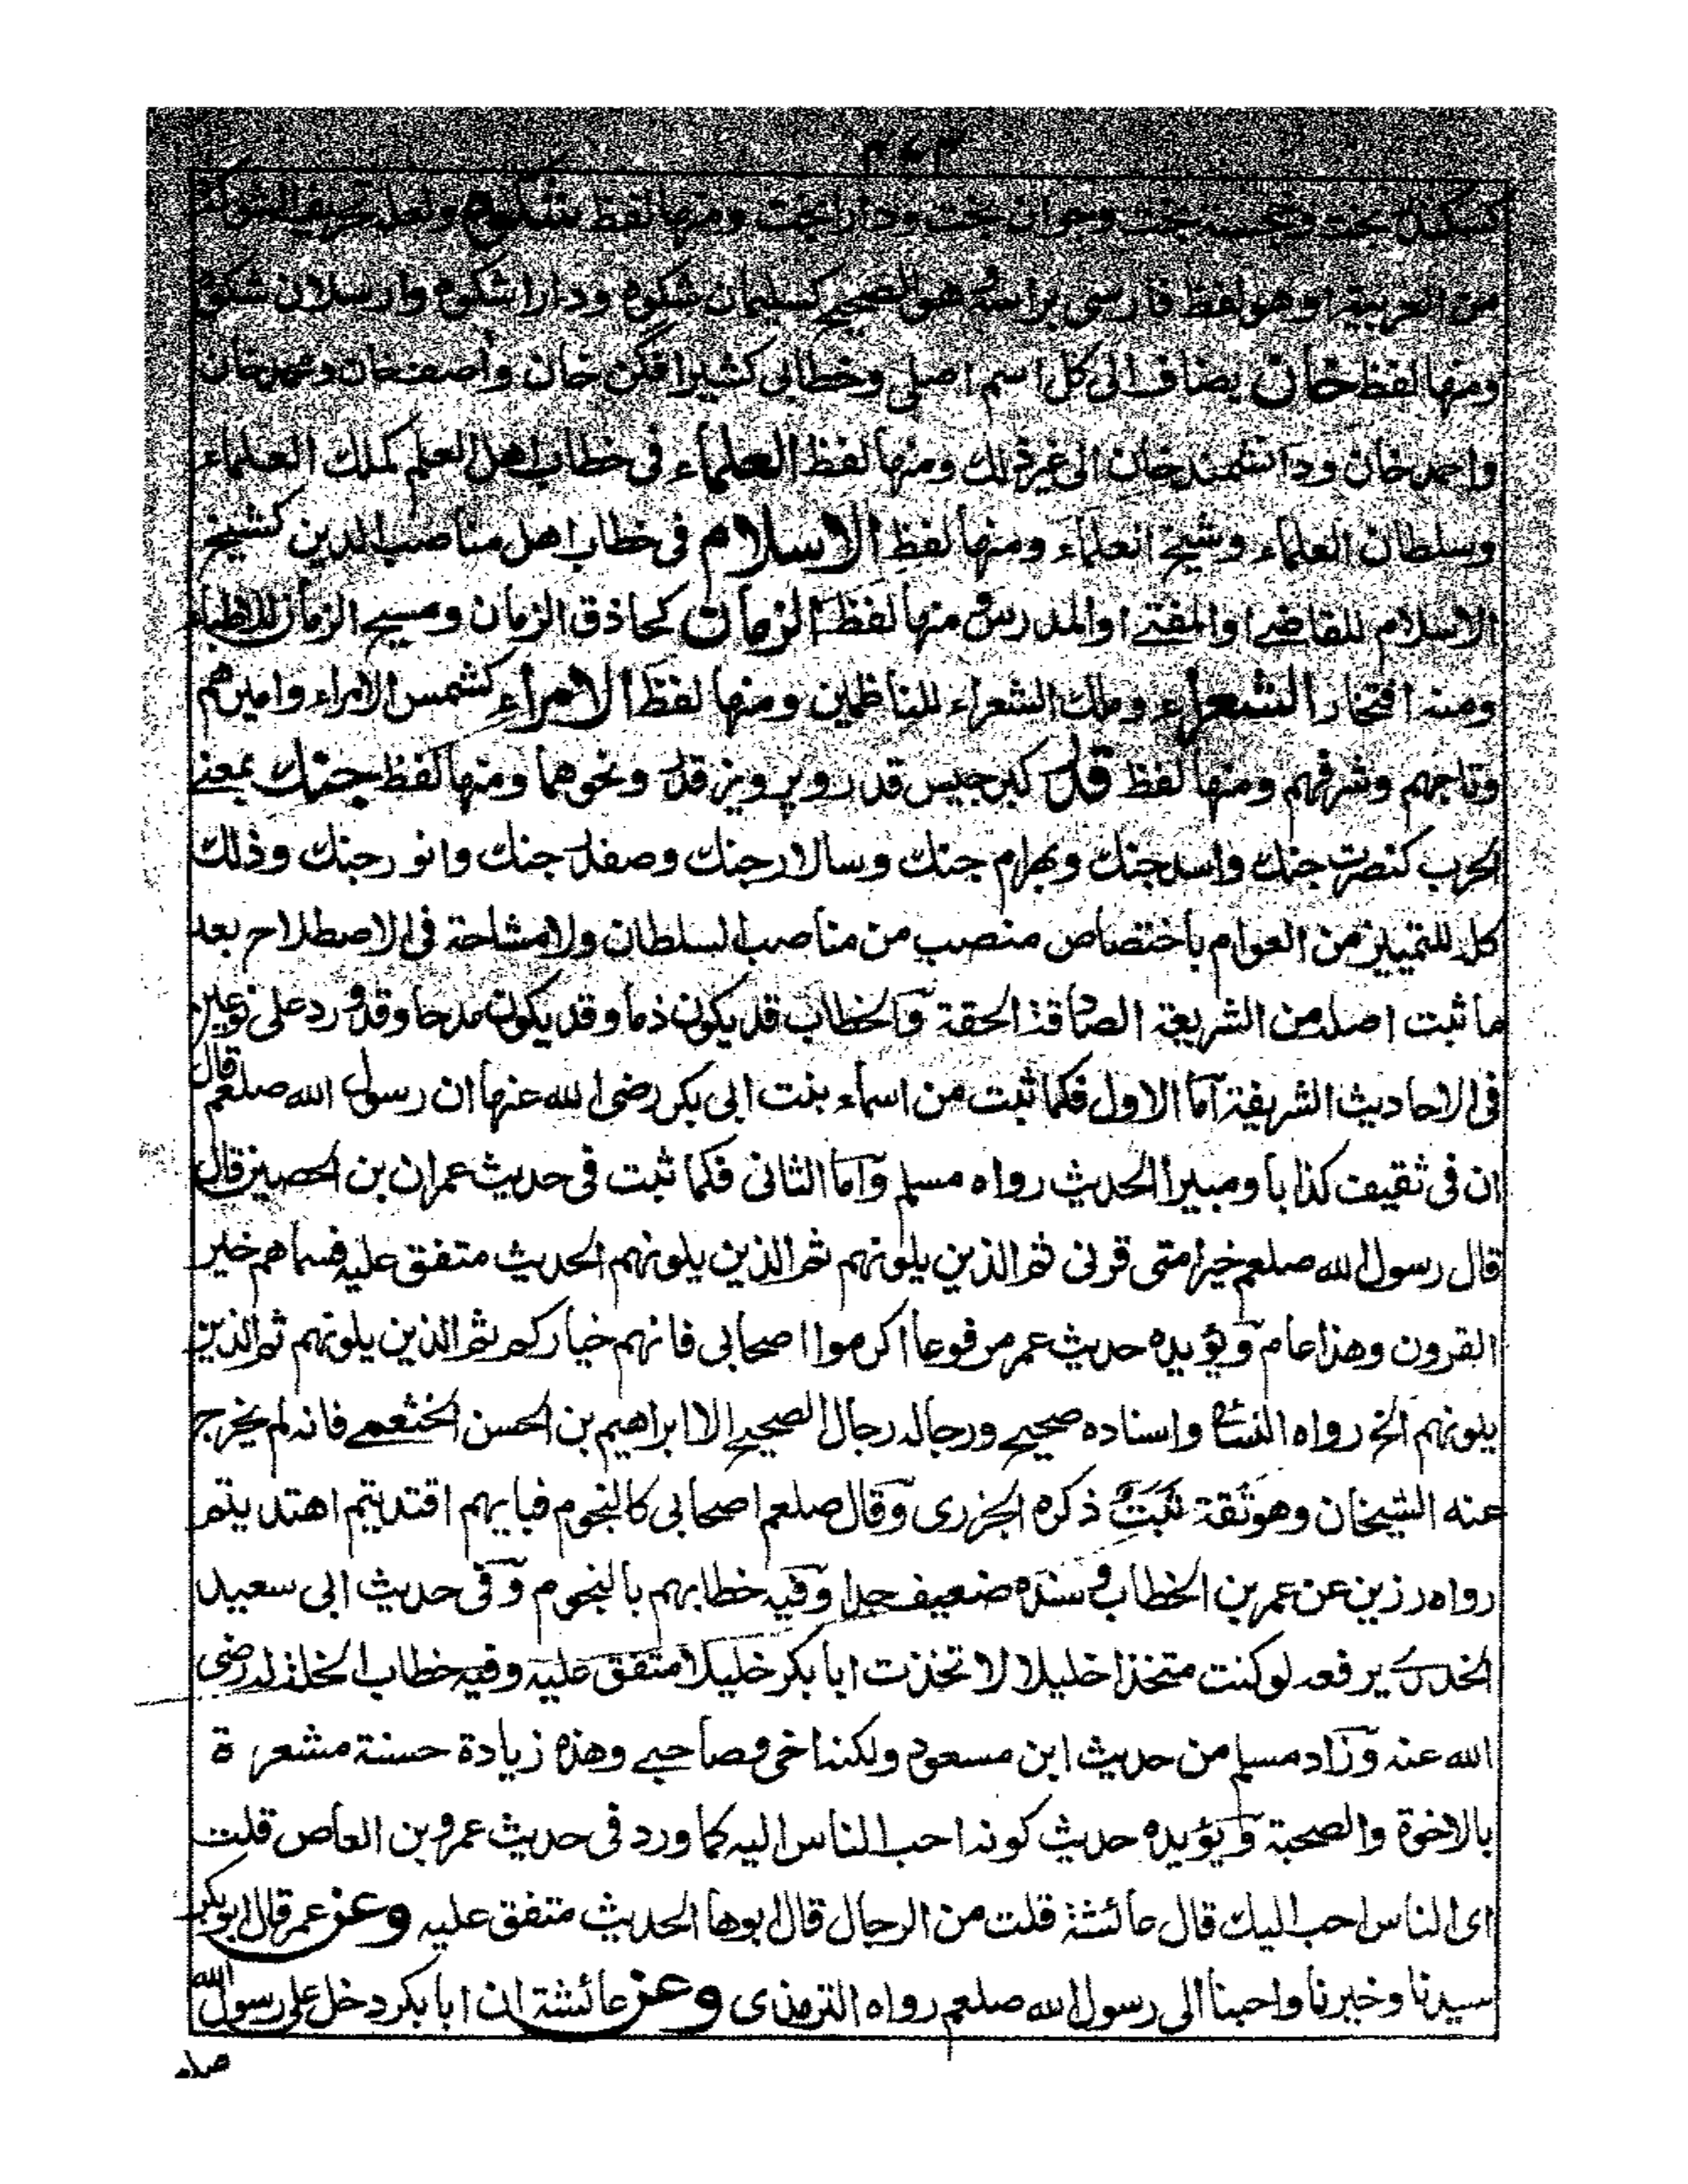 كسكندر بخت وخجسته بخت وجوان بخت ودارا بخت ومنها لفظ شكوه ولعل تحريف الشوكة
من العربية او هو لفظ فارسى براسه هو الصحيح كسليمان شكوه ودارا شكوه وارسلان شكوه
ومنها لفظ خان يضاف الى كل اسم اصلى وخطابى كشيرافگن خان وآصف خان و خان
واحمد خان ودانشمند خان الى غير ذلك ومنها لفظ العلماء فى خطاب اهل العلم كملك العلماء
وسلطان العلماء وشيخ العلماء ومنها لفظ الاسلام فى خطاب اهل مناصب الدين كشيخ
الاسلام للقاضى او المفتى او المدرس ومنها لفظ الزمان كحاذق الزمان ومسيح الزمان للاطباء
ومنه افتخار الشعراء وملك الشعراء للناظمين ومنها لفظ الامراء كشمس الامراء واميرهم
وتاجهم وشرفهم ومنها لفظ قدر كبرجيس قدر وپرويز قدر ونحوهما ومنها لفظ جنك بمعنى
الحرب كنصرت جنك واسد جنك وبهرام جنك وسالار جنك وصفدر جنك وانور جنك وذلك
كله للتمييز من العوام باختصاص منصب من مناصب السلطان ولا مشاحة فى الاصطلاح بعد
ما ثبت اصله من الشريعة الصادقة الحقة والخطاب قد يكون ذما وقد يكون مدحا وقد ورد على نوعين
فى الاحاديث الشريفة اما الاول فكما ثبت من اسماء بنت ابى بكر رضى الله عنها ان رسول الله صلعم قال
ان فى ثقيف كذابا ومبيرا الحديث رواه مسلم واما الثانى فكما ثبت فى حديث عمران بن الحصين قال
قال رسول الله صلعم خير امتى قرنى ثم الذين يلونهم ثم الذين يلونهم الحديث متفق عليه فسماهم خير
القرون وهذا عام ويؤيده حديث عمر مرفوعا اكرموا اصحابى فانهم خياركم ثم الذين يلونهم ثم الذين
يلونهم الخ رواه النسائى واسناده صحيح ورجاله رجال الصحيح الا ابراهيم بن الحسن الخثعمى فانه لم يخرج
عنه الشيخان وهو ثقة ثبت ذكره الجزرى وقال صلعم اصحابى كالنجوم فبايهم اقتديتم اهتديتم
رواه رزين عن عمر بن الخطاب وسنده ضعيف جدا وفيه خطابهم بالنجوم وفى حديث ابى سعيد
الخدرى يرفعه لو كنت متخذا خليلا لاتخذت ابا بكر خليلا متفق عليه وفيه خطاب الخلة له رضى
الله عنه وزاد مسلم من حديث ابن مسعود ولكنه اخى وصاحبى وهذه زيادة حسنة مشعرة
بالاخوة والصحبة ويؤيده حديث كونه احب الناس اليه كما ورد فى حديث عمرو بن العاص قلت
اى الناس احب اليك قال عائشة قلت من الرجال قال ابوها الحديث متفق عليه وعن عمر قال ابو بكر
سيدنا وخيرنا واحبنا الى رسول الله صلعم رواه الترمذى وعن عائشة ان ابا بكر دخل على رسول الله
صلعم